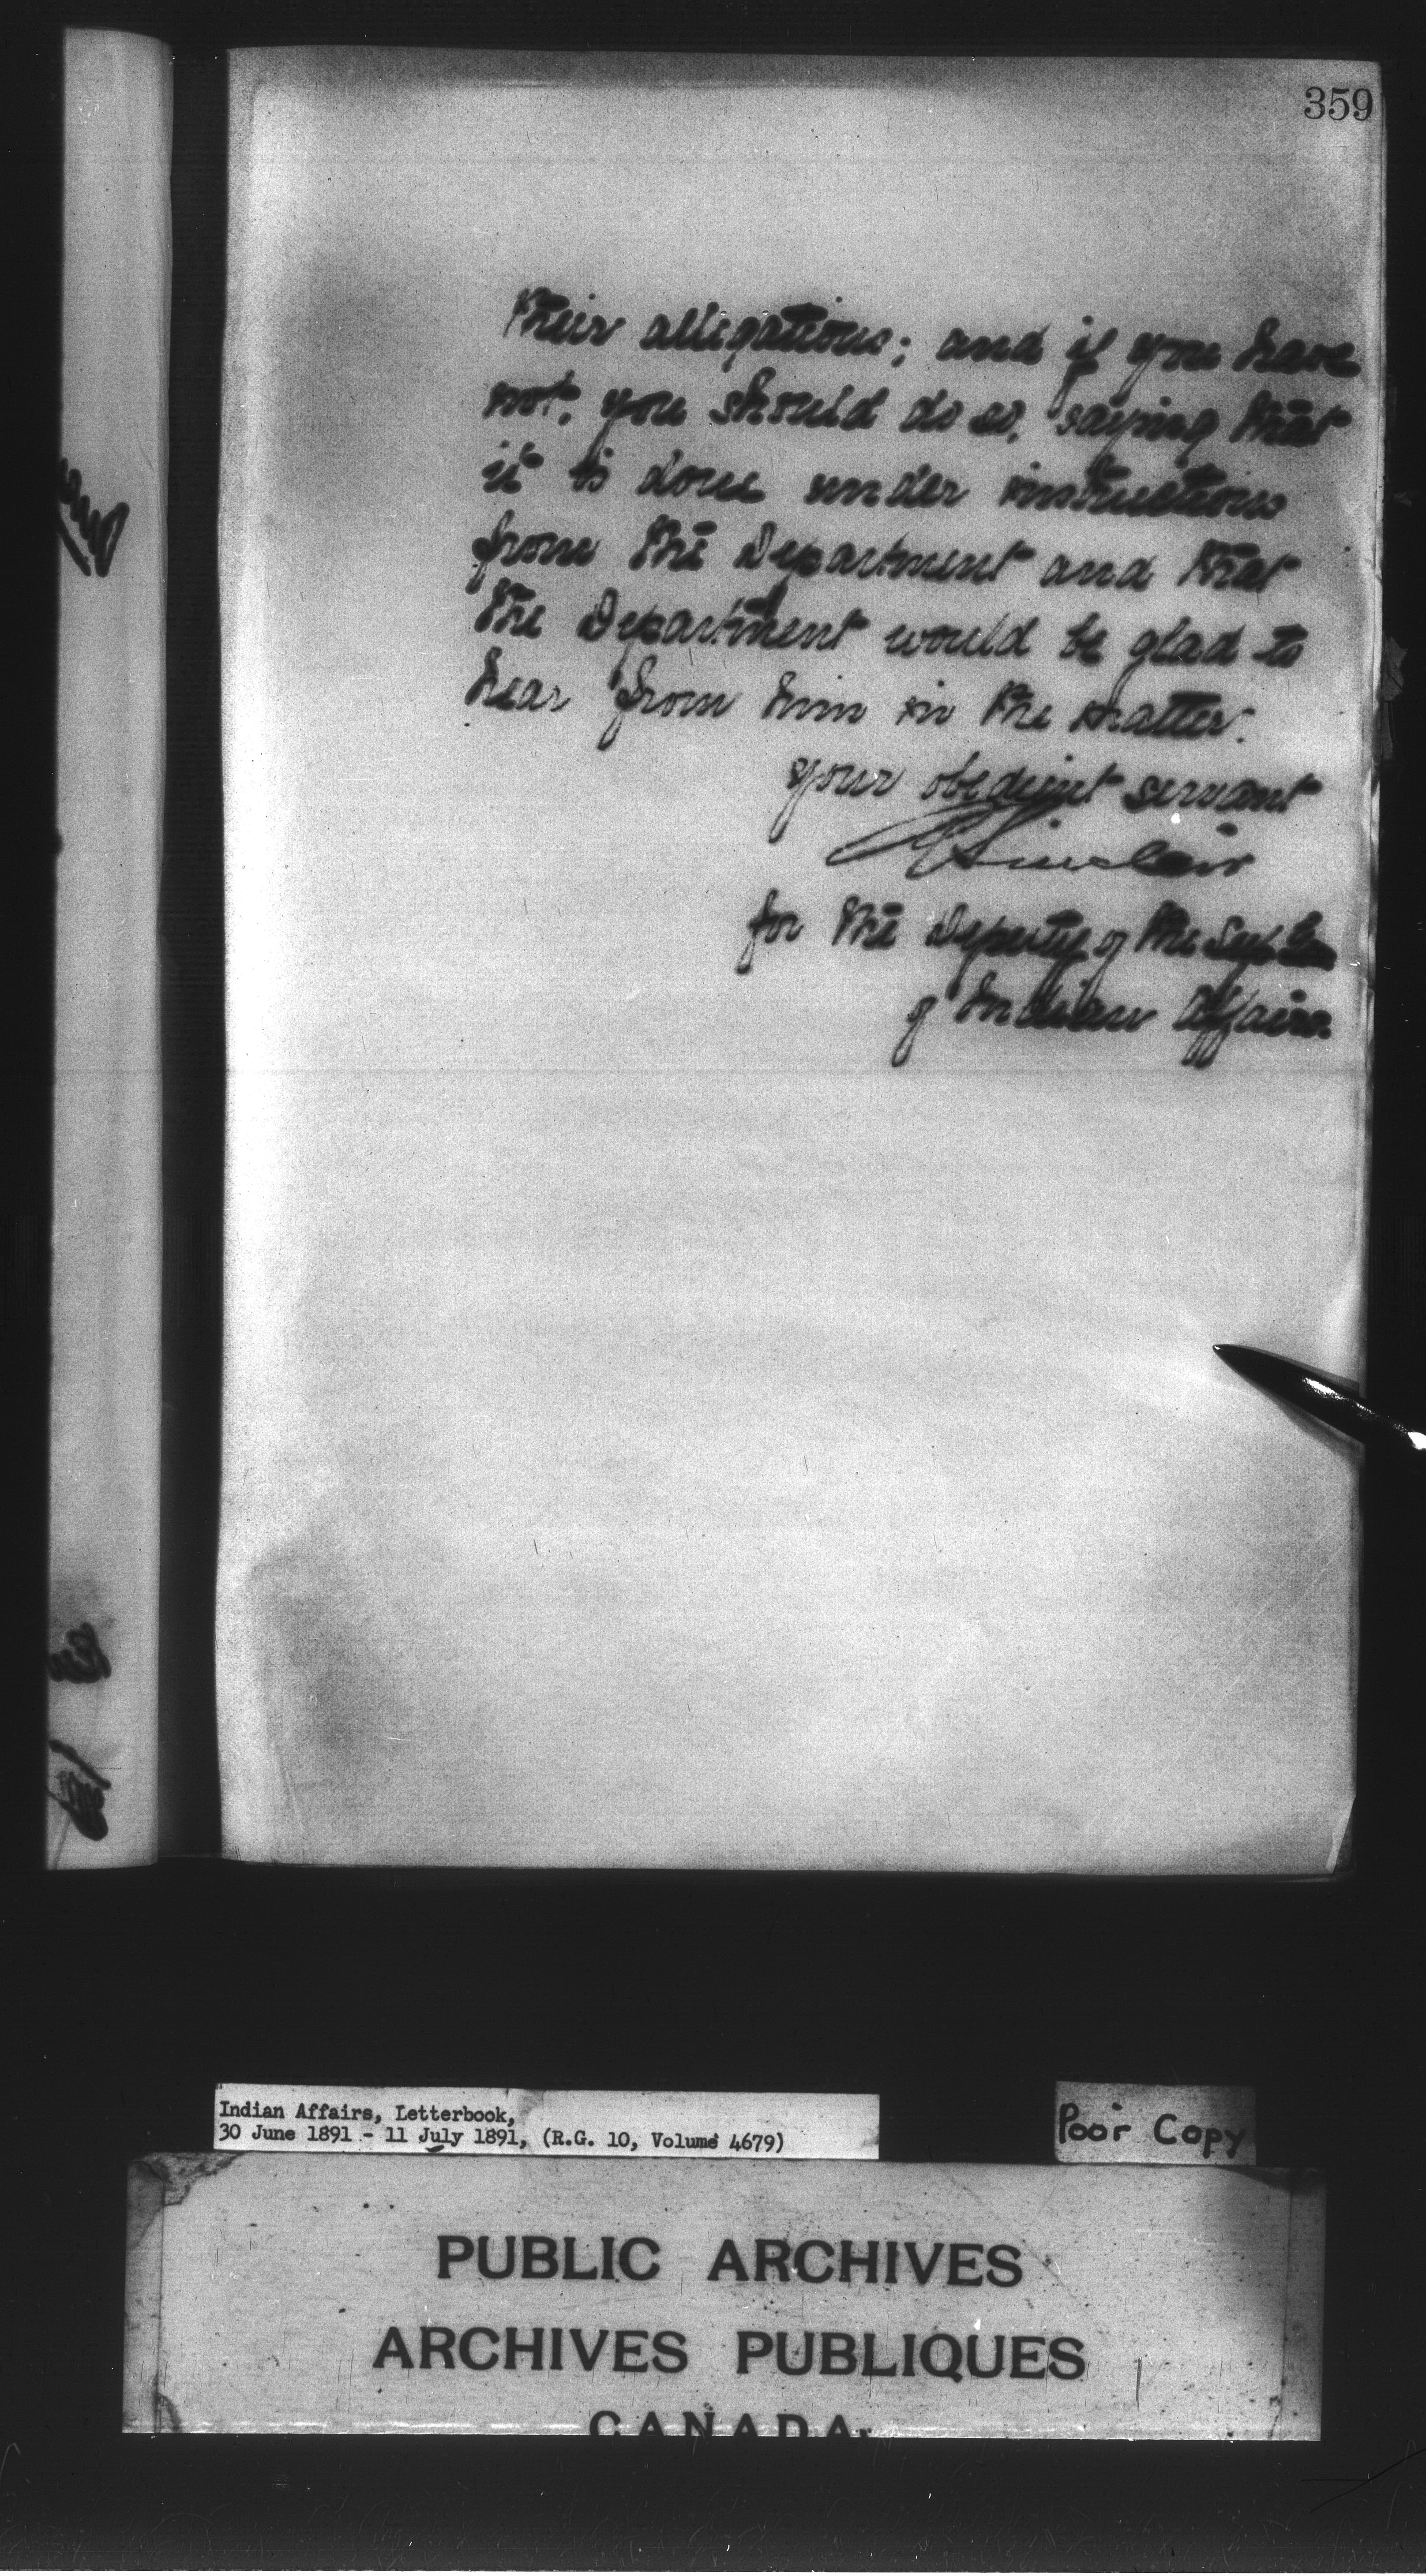 359
their allegations; and if you have
not, you should do so, saying that
it is done under instructions
from the Department and that
the Department would be glad to
hear from him in the matter.
your obedient servant
Sinclair
for the Deputy of the Supt Gen
of Indian Affairs.
Indian Affairs, Letterbook,
30 June 1891 - 11 July 1891, (R.G. 10, Volume 4679)
Poor Copy
PUBLIC ARCHIVES
ARCHIVES PUBLIQUES
CANADA